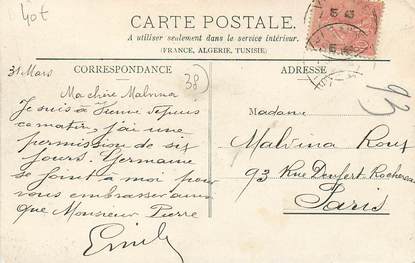 40t
CARTE POSTALE.
A utiliser seulement dans le service intérieur.
(FRANCE, ALGERIE, TUNISIE)
CORRESPONDANCE
ADRESSE
31 Mars
38
93
Ma chère Malvina
Je suis à depuis
ce matin, j'ai une
permission de six
jours. Germaine
se joint à moi pour
vous embrasser ainsi
que Monsieur Pierre
Emile
Madame
Malvina Roux
93 Rue Denfert Rochereau
Paris